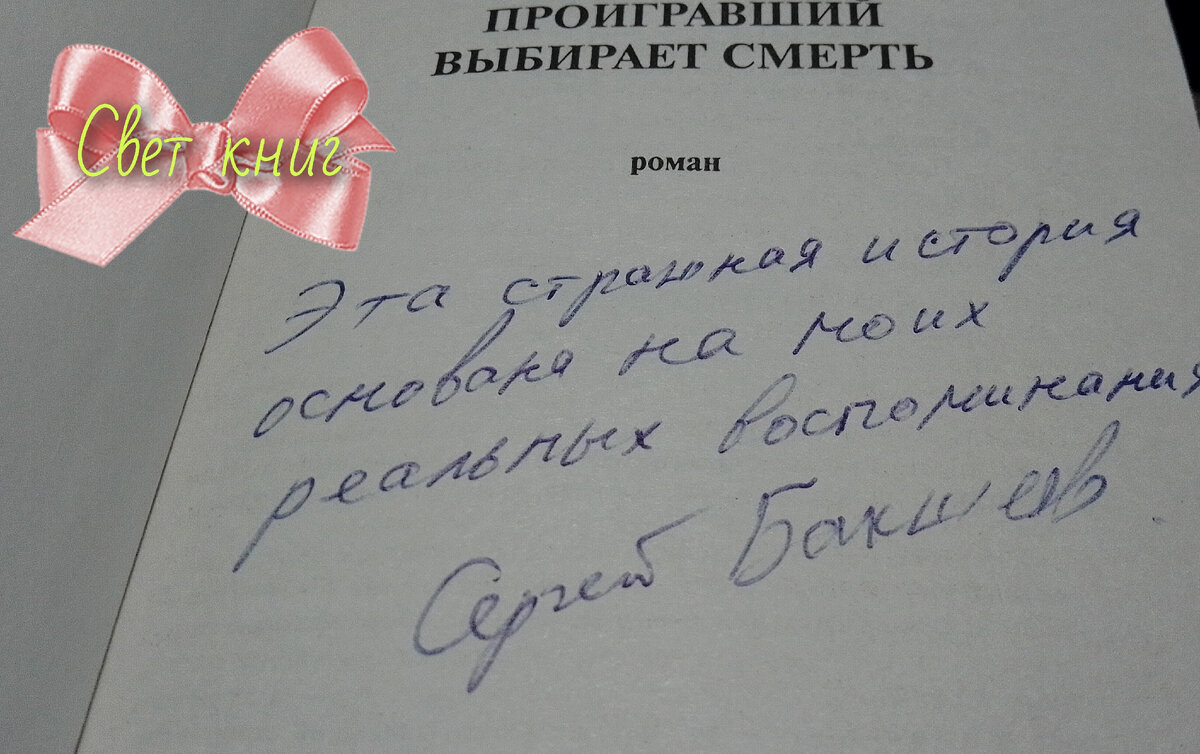 ПРОИГРАВШИЙ
ВЫБИРАЕТ СМЕРТЬ
Свет книг
роман
Эта страшная история
основана на моих
реальных воспоминания
Сергей Бакшеев